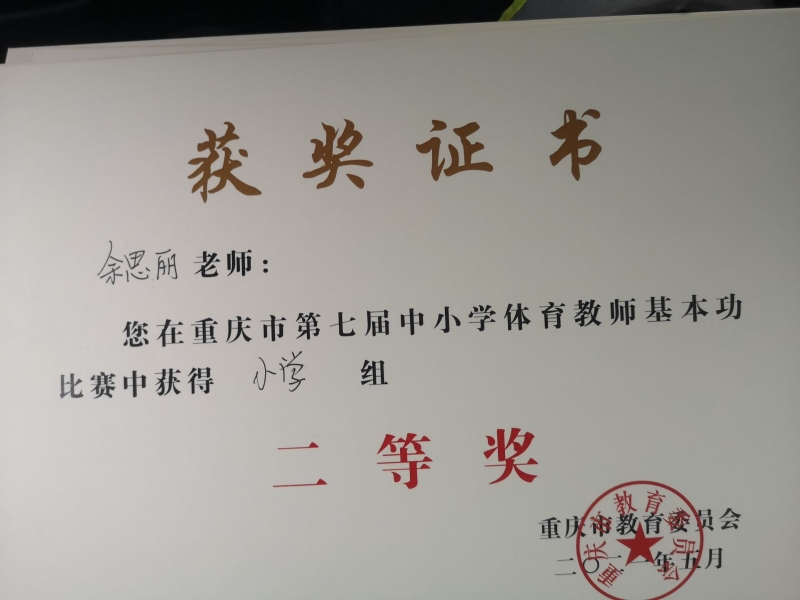 获奖证书
余思丽老师：
您在重庆市第七届中小学体育教师基本功
比赛中获得 小学 组
二等奖
重庆市教育委员会
二〇二一年五月
重庆市教育委员会